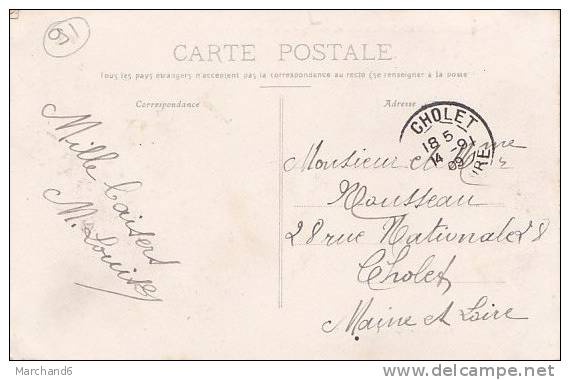 CARTE POSTALE
Tous les pays étrangers n'acceptent pas la correspondance au recto (se renseigner à la poste
Correspondance
Adresse
Mille baisers
M. Louise
CHOLET
18 5
14 -
09
Monsieur et Mme
Rousseau
28 rue Nationale 28
Cholet
Maine et Loire
Marchand6
www.delcampe.net